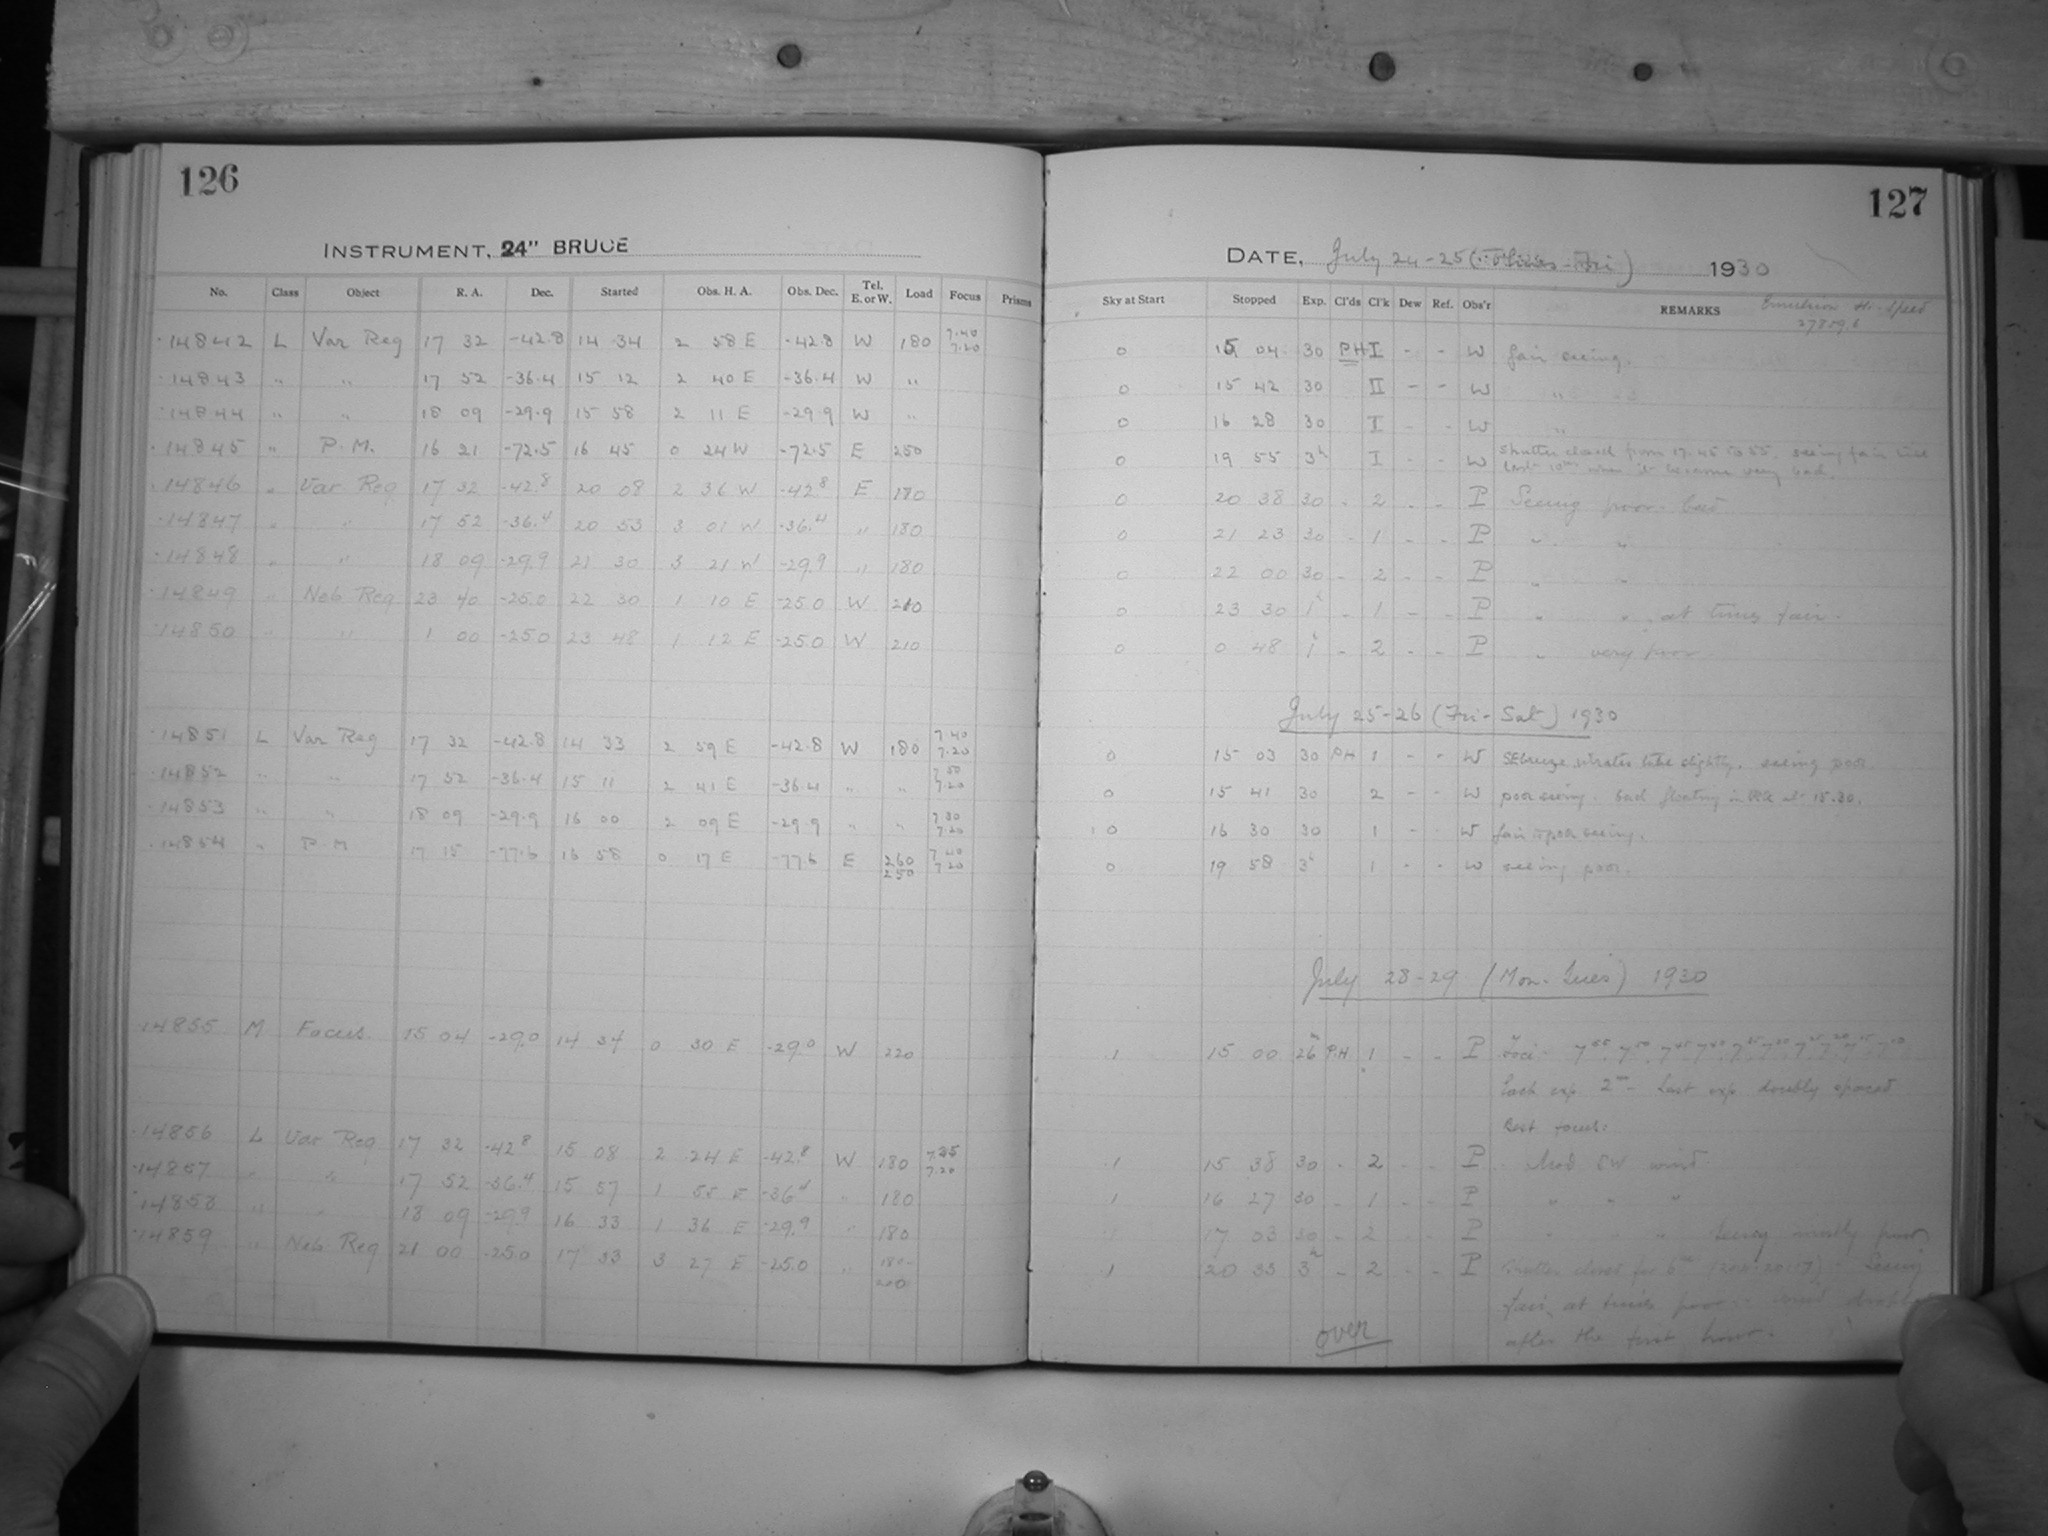 126
INSTRUMENT, 24" BRUCE
No. Class Object R. A. Dec. Started Obs. H. A. Obs. Dec. Tel. E. or W. Load Focus Prisms
14842 L Var Reg 17 32 -42.8 14 34 2 58 E -42.8 W 180 7.40 7.20
14843 " " 17 52 -36.4 15 12 2 40 E -36.4 W "
14844 " " 18 09 -29.9 15 58 2 11 E -29.9 W "
14845 " P.M. 16 21 -72.5 16 45 0 24 W -72.5 E 250
14846 " Var Reg 17 32 -42.8 20 08 2 36 W -42.8 E 180
14847 " " 17 52 -36.4 20 53 3 01 W -36.4 " 180
14848 " " 18 09 -29.9 21 30 3 21 W -29.9 " 180
14849 " Neb Reg 23 40 -25.0 22 30 1 10 E -25.0 W 210
14850 " " 1 00 -25.0 23 48 1 12 E -25.0 W 210
14851 L Var Reg 17 32 -42.8 14 33 2 59 E -42.8 W 180 7.40 7.20
14852 " " 17 52 -36.4 15 11 2 41 E -36.4 " " 7.50 7.20
14853 " " 18 09 -29.9 16 00 2 09 E -29.9 " " 7.30 7.20
14854 " P.M 17 15 -77.6 16 58 0 17 E -77.6 E 260 250 7.40 7.20
14855 M Focus 15 04 -29.0 14 34 0 30 E -29.0 W 220
14856 L Var Reg 17 32 -42.8 15 08 2 24 E -42.8 W 180 7.35 7.20
14857 " " 17 52 -36.4 15 57 1 55 E -36.4 " 180
14858 " " 18 09 -29.9 16 33 1 36 E -29.9 " 180
14859 " Neb Reg 21 00 -25.0 17 33 3 27 E -25.0 " 180- 200
127
DATE, July 24-25 (Thurs-Fri) 1930
Sky at Start Stopped Exp. Cl'ds Cl'k Dew Ref. Obs'r REMARKS Emulsion Hi-Speed
0 15 04 30 PH I - - W fair seeing.
0 15 42 30 II - - W "
0 16 28 30 I - - W "
0 19 55 3h I - - W Shutter closed from 17.45 to 55. seeing fair till
last 10m when it became very bad.
0 20 38 30 - 2 - - P Seeing poor - bad
0 21 23 30 - 1 - - P " "
0 22 00 30 - 2 - - P " "
0 23 30 1h - 1 - - P " " at times fair.
0 0 48 1h - 2 - - P " very poor.
July 25-26 (Fri-Sat) 1930
0 15 03 30 PH 1 - - W SE breeze vibrates tube slightly. seeing poor
0 15 41 30 2 - - W poor seeing. bad floating in RA at 15.30.
0 16 30 30 1 - - W fair to poor seeing.
0 19 58 3h 1 - - W seeing poor.
July 28-29 (Mon-Tues) 1930
1 15 00 26m P.H 1 - - P Foci -
Each exp 2m - Last exp. doubly spaced
Best focus:
1 15 38 30 - 2 - - P Mod SW wind
1 16 27 30 - 1 - - P " " "
1 17 03 30 - 2 - - P " " " Seeing mostly poor
1 20 33 3h - 2 - - P Shutter closed for 6m Seeing
fair, at times poor - wind dropped
after the first hour.
over